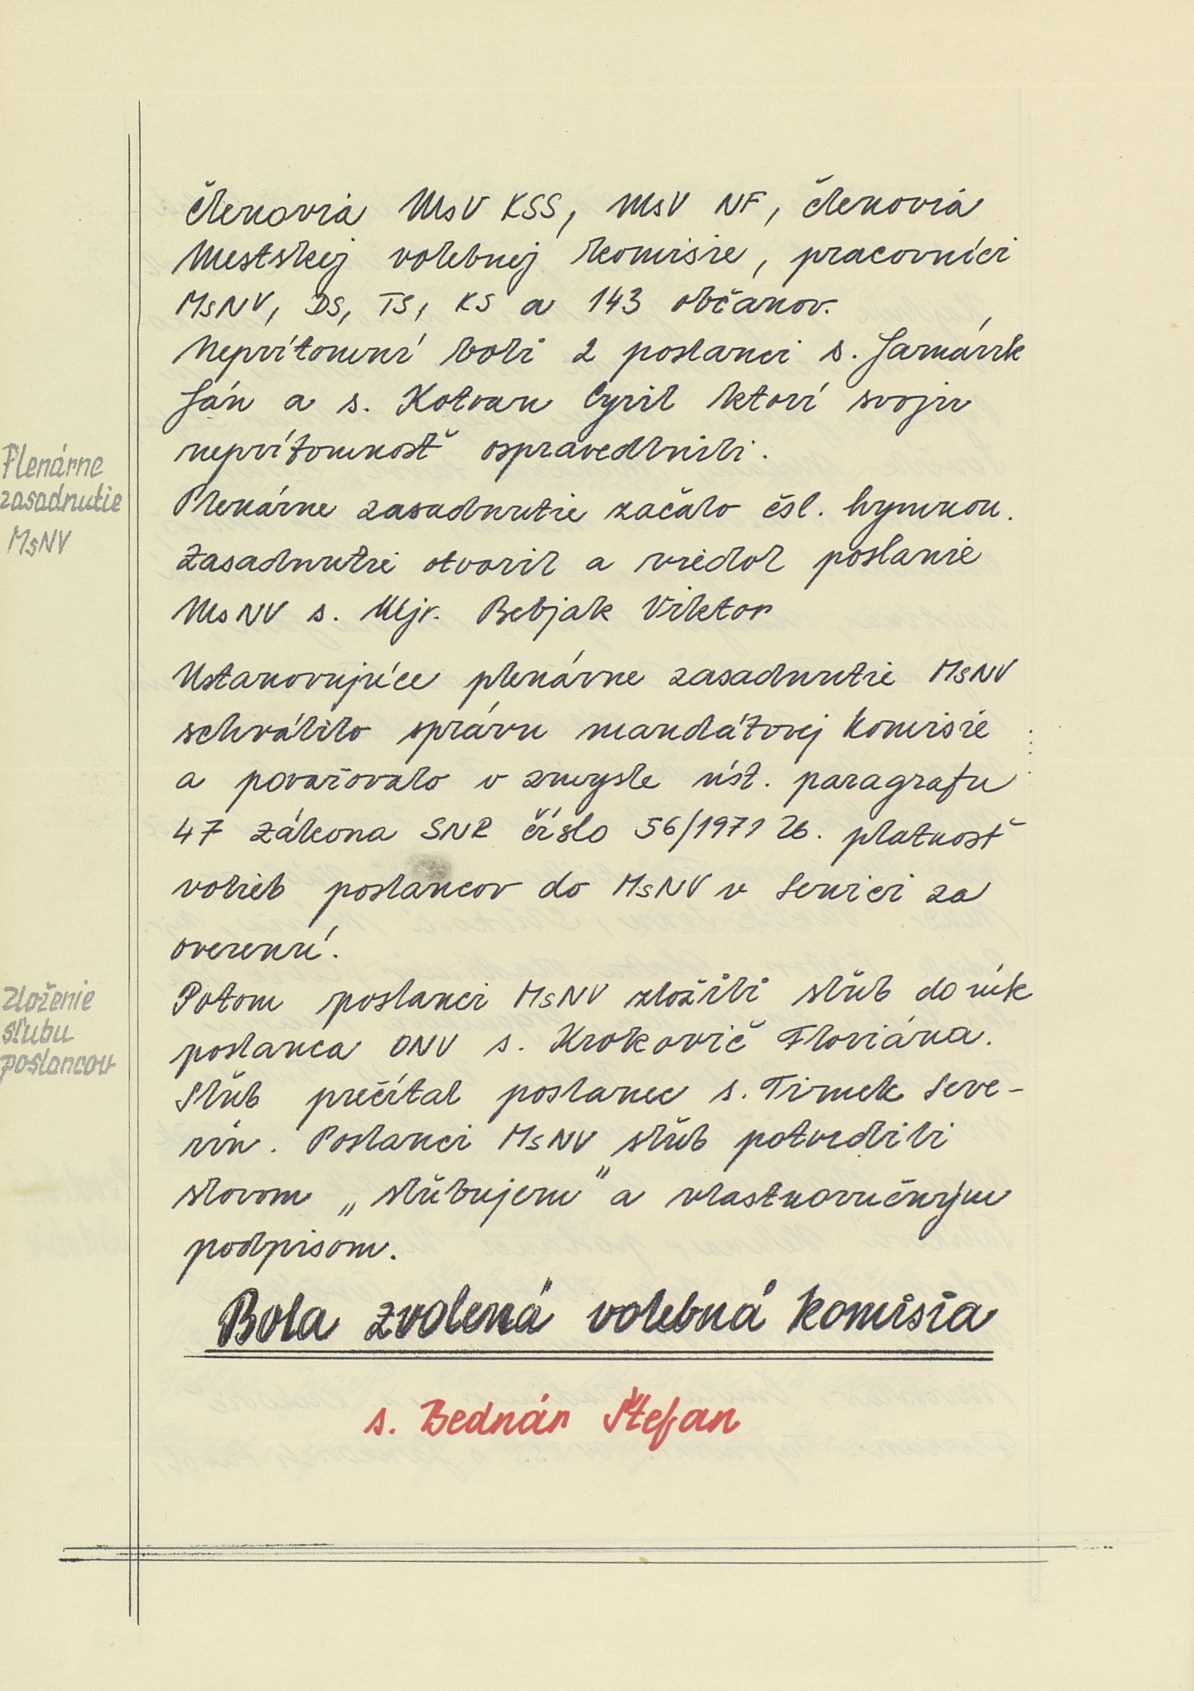 členovia MsV KSS, MsV NF, členovia
Mestskej volebnej komisie, pracovníci
MsNV, DS, TS, KS a 143 občanov.
Neprítomní boli 2 poslanci s. Jamárik
Ján a s. Kotvan Cyril ktorí svoju
neprítomnosť ospravedlnili.
Plenárne
zasadnutie
MsNV
Plenárne zasadnutie začalo čsl. hymnou.
Zasadnutie otvoril a viedol poslanie
MsNV s. Mjr. Bebjak Viktor
Ustanovujúce plenárne zasadnutie MsNV
schválilo správu mandátovej komisie
a považovalo v zmysle úst. paragrafu
47 zákona SNR číslo 56/1971 Zb. platnosť
volieb poslancov do MsNV v Senici za
overenú.
Zloženie
sľubu
poslancov
Potom poslanci MsNV zložili slúb do rúk
poslanca ONV s. Krokovič Floriána.
Slúb prečítal poslanec s. Timek Seve-
rín. Poslanci MsNV slúb potvrdili
slovom „slúbujem" a vlastnoručným
podpisom.
Bola zvolená volebná komisia
s. Bednár Štefan